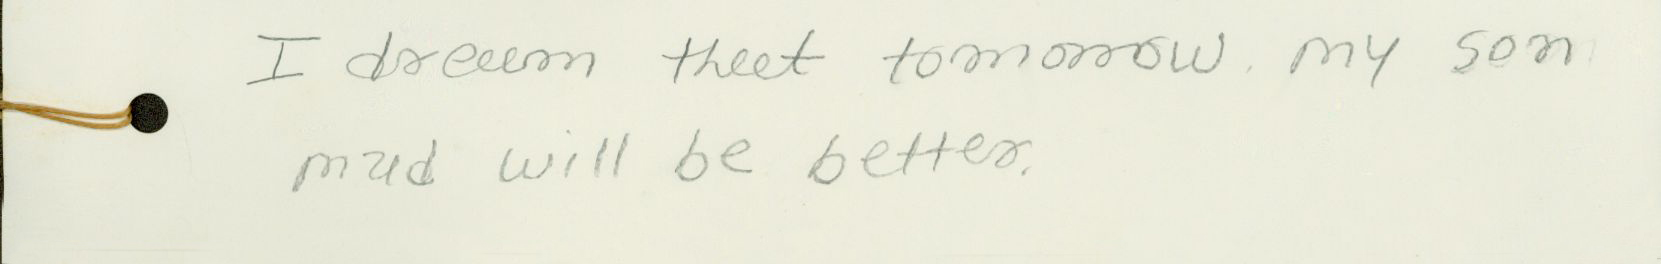 I dream that tomorrow my son
will be better.